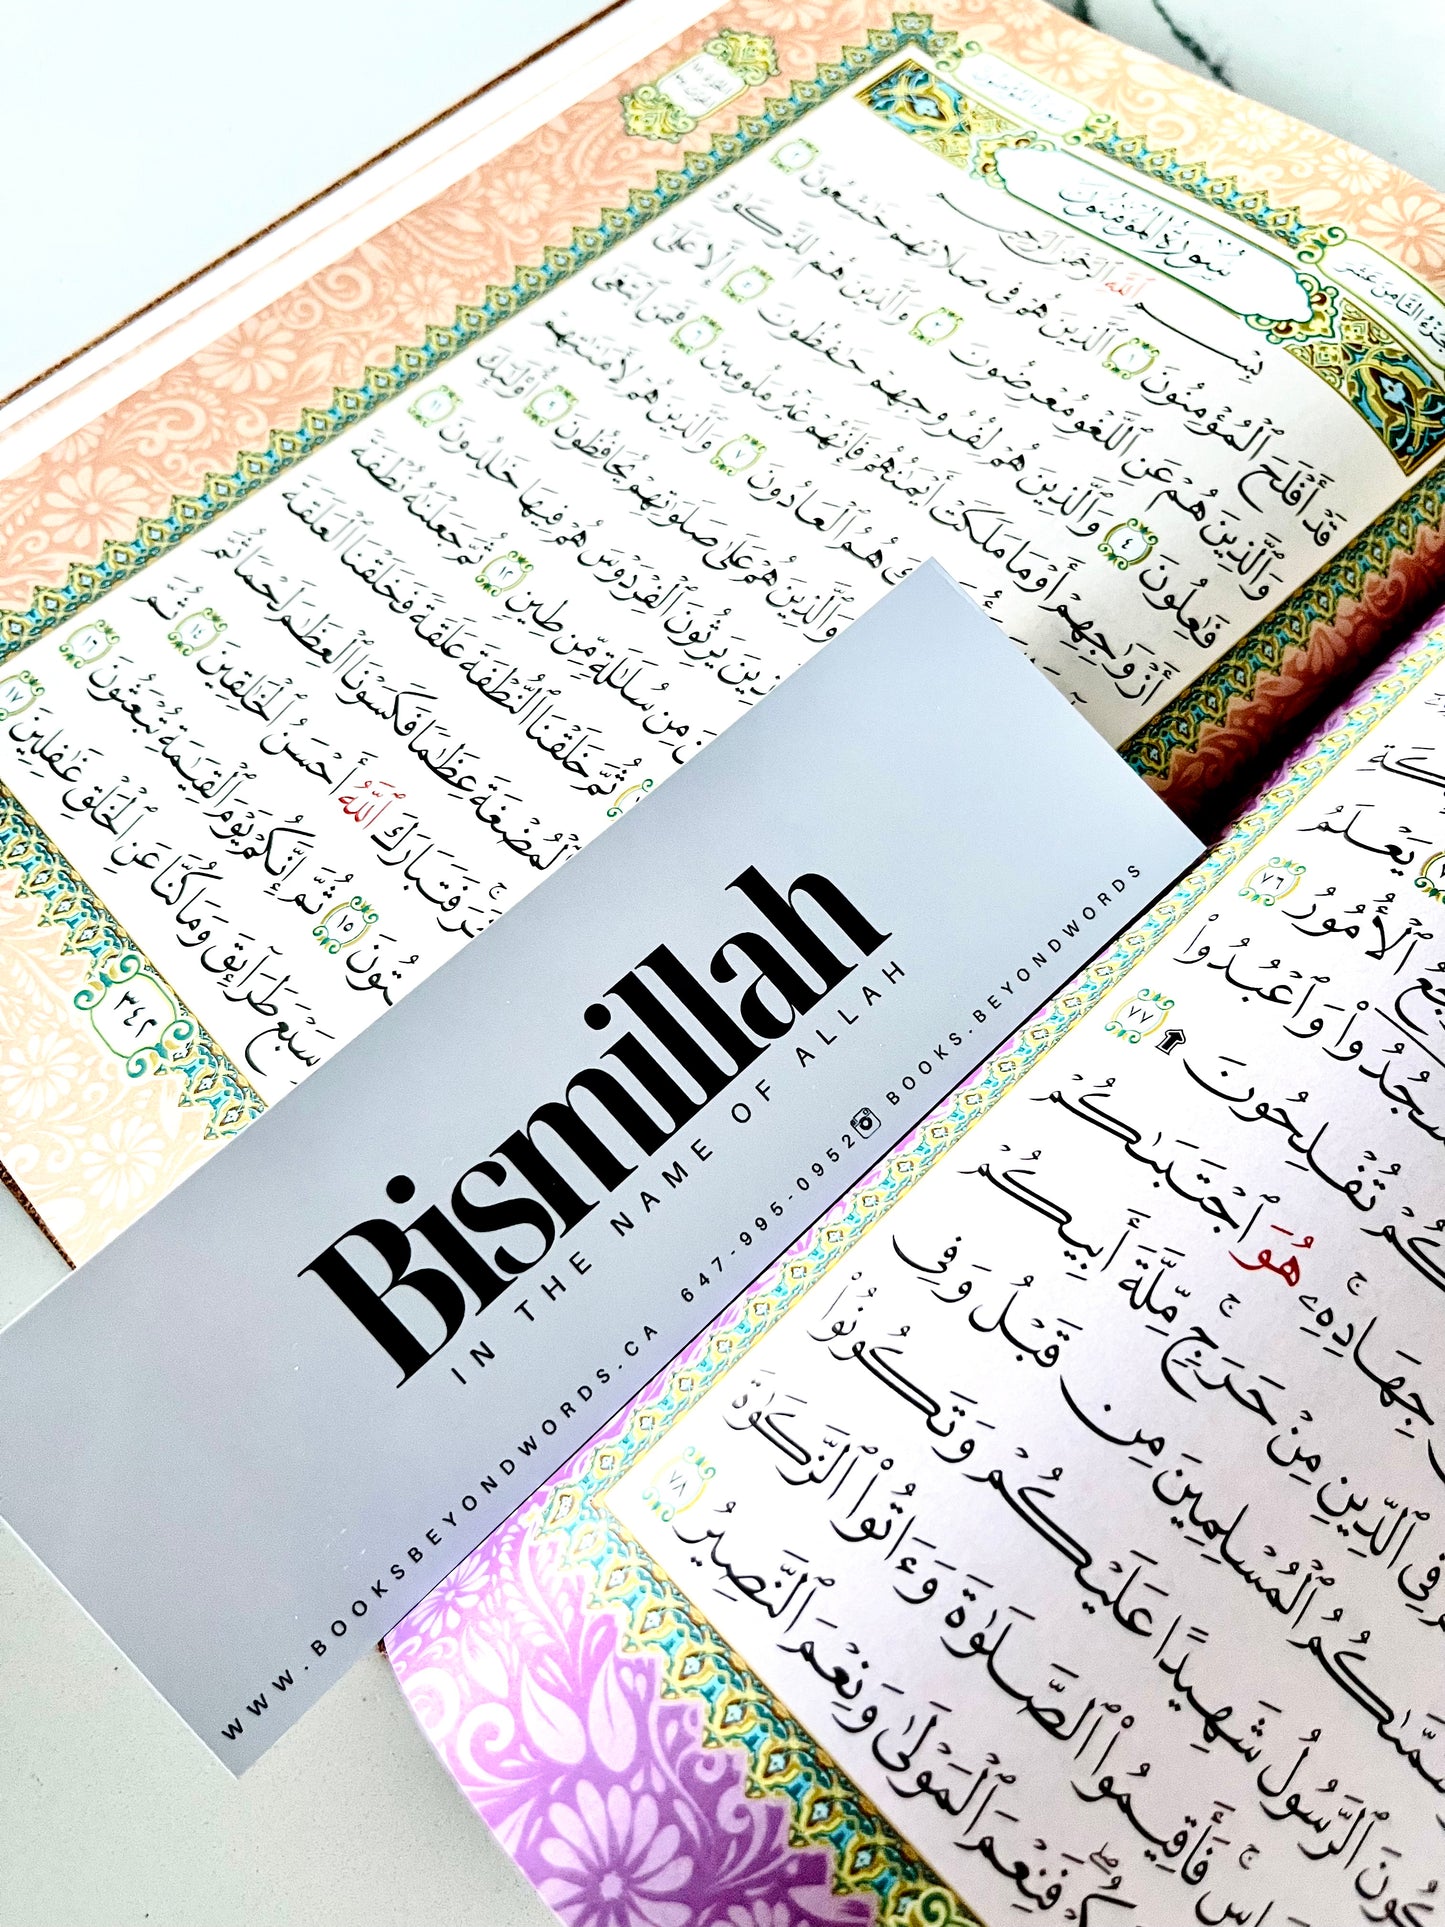 سورة المؤمنون
الجزء الثامن عشر
سُورَةُ المُؤْمِنُونَ
بِسْمِ ٱللَّهِ ٱلرَّحْمَٰنِ ٱلرَّحِيمِ
قَدْ أَفْلَحَ ٱلْمُؤْمِنُونَ ١ ٱلَّذِينَ هُمْ فِى صَلَاتِهِمْ خَٰشِعُونَ ٢
وَٱلَّذِينَ هُمْ عَنِ ٱللَّغْوِ مُعْرِضُونَ ٣ وَٱلَّذِينَ هُمْ لِلزَّكَوٰةِ
فَٰعِلُونَ ٤ وَٱلَّذِينَ هُمْ لِفُرُوجِهِمْ حَٰفِظُونَ ٥ إِلَّا عَلَىٰٓ
أَزْوَٰجِهِمْ أَوْ مَا مَلَكَتْ أَيْمَٰنُهُمْ فَإِنَّهُمْ غَيْرُ مَلُومِينَ ٦ فَمَنِ ٱبْتَغَىٰ
هُمُ ٱلْعَادُونَ ٧ وَٱلَّذِينَ هُمْ لِأَمَٰنَٰتِهِمْ
وَٱلَّذِينَ هُمْ عَلَىٰ صَلَوَٰتِهِمْ يُحَافِظُونَ ٩ أُو۟لَٰٓئِكَ
يَرِثُونَ ٱلْفِرْدَوْسَ هُمْ فِيهَا خَٰلِدُونَ ١١
مِن سُلَٰلَةٍ مِّن طِينٍ ١٢ ثُمَّ جَعَلْنَٰهُ نُطْفَةً
ثُمَّ خَلَقْنَا ٱلنُّطْفَةَ عَلَقَةً فَخَلَقْنَا ٱلْعَلَقَةَ
ٱلْمُضْغَةَ عِظَٰمًا فَكَسَوْنَا ٱلْعِظَٰمَ لَحْمًا ثُمَّ
فَتَبَارَكَ ٱللَّهُ أَحْسَنُ ٱلْخَٰلِقِينَ ١٤ ثُمَّ
١٥ ثُمَّ إِنَّكُمْ يَوْمَ ٱلْقِيَٰمَةِ تُبْعَثُونَ ١٦
سَبْعَ طَرَآئِقَ وَمَا كُنَّا عَنِ ٱلْخَلْقِ غَٰفِلِينَ ١٧
٣٤٢
Bismillah
IN THE NAME OF ALLAH
WWW.BOOKSBEYONDWORDS.CA 647-995-0952 BOOKS.BEYONDWORDS
يَعْلَمُ
ٱلْأُمُورُ ٧٦
وَٱعْبُدُوا۟
تُفْلِحُونَ ٧٧
جِهَادِهِۦ هُوَ ٱجْتَبَىٰكُمْ
فِى ٱلدِّينِ مِنْ حَرَجٍ مِّلَّةَ أَبِيكُمْ
ٱلْمُسْلِمِينَ مِن قَبْلُ وَفِى
ٱلرَّسُولُ شَهِيدًا عَلَيْكُمْ وَتَكُونُوا۟
فَأَقِيمُوا۟ ٱلصَّلَوٰةَ وَءَاتُوا۟ ٱلزَّكَوٰةَ
فَنِعْمَ ٱلْمَوْلَىٰ وَنِعْمَ ٱلنَّصِيرُ ٧٨